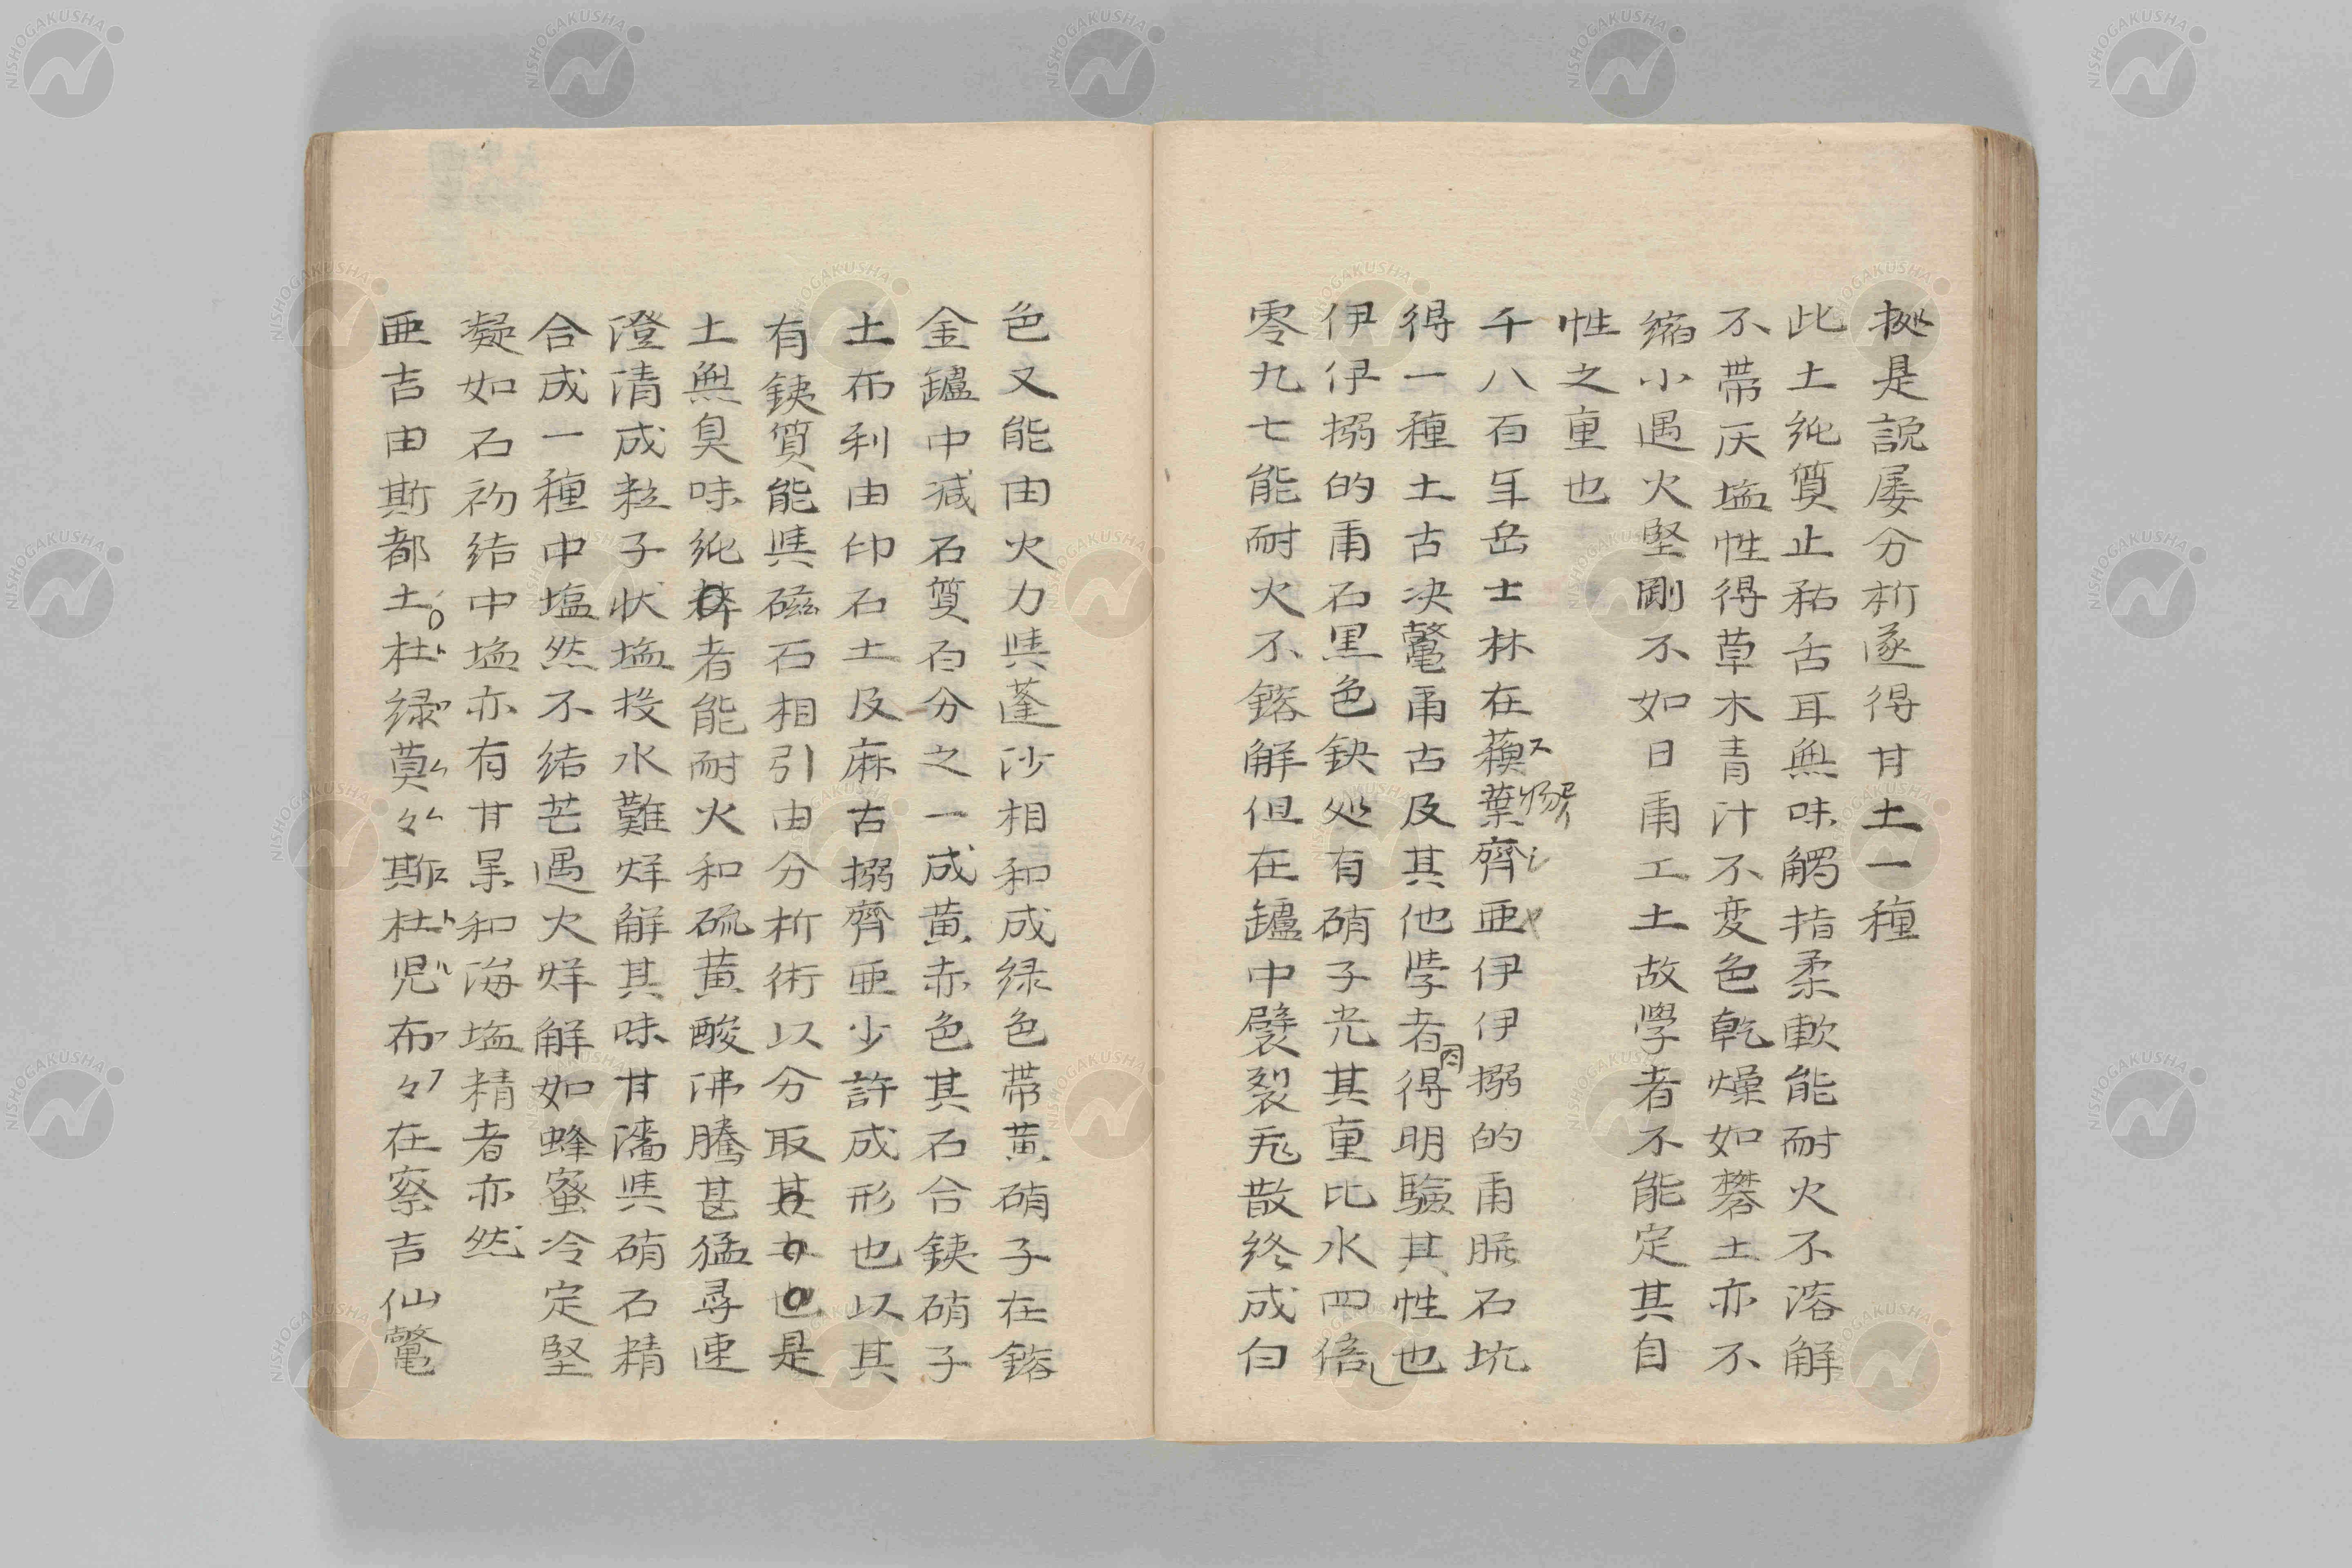 拠是説屡分析遂得甘土一種
此土純質止粘舌耳無味觸指柔軟能耐火不溶解
不帯灰塩性得草木青汁不変色乾燥如礬土亦不
縮小遇火堅剛不如日甭工土故学者不能定其自
性之重也
千八百年岳士林在蘓葉齊亜伊伊搦的甭脈石坑
得一種土古决鼈甭古及其他学者得明驗其性也
伊伊搦的甭石黒色鈌処有硝子光其重比水四倍
零九七能耐火不鎔解但在鑪中襞裂飛散終成白
色又能由火力与蓬沙相和成緑色帯黄硝子在鎔
金鑪中減石質百分之一成黄赤色其石合鉄硝子
土布利由印石土及麻古搦齊亜少許成形也以其
有鉄質能与磁石相引由分析術以分取其土也是
土無臭味純粹者能耐火和硫黄酸沸騰甚猛尋速
澄清成粒子状塩投水難烊解其味甘濇与硝石精
合成一種中塩然不結芒遇火烊解如蜂蜜冷定堅
凝如石礿結中塩亦有甘杲和海塩精者亦然
亜吉由斯都土杜緑莫々斯杜児布々在察吉仙鼈
NISHOGAKUSHA